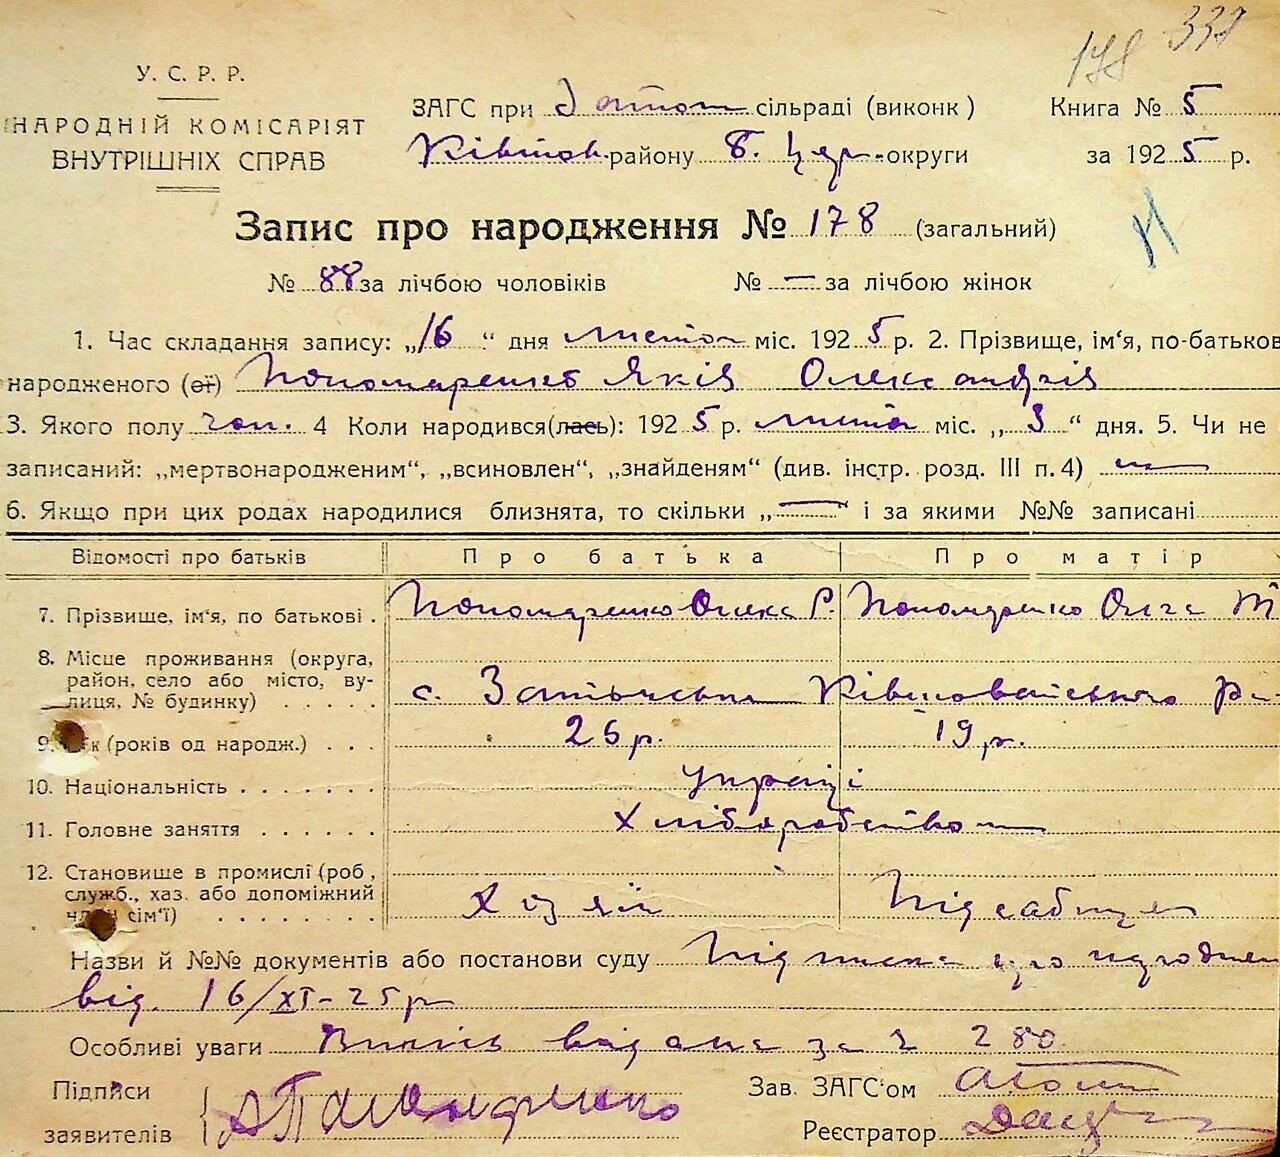 178 337
У. С. Р. Р.
НАРОДНІЙ КОМІСАРІЯТ
ВНУТРІШНІХ СПРАВ
ЗАГС при сільраді (виконк)
району Б. Церк. округи
Книга № 5
за 1925 р.
Запис про народження № 178 (загальний)
№ 88 за лічбою чоловіків № — за лічбою жінок
1. Час складання запису: „16“ дня листоп міс. 1925 р. 2. Прізвище, ім'я, по-батьков
народженого (ої) Пономаренко Яків Олександрів
3. Якого полу чол. 4 Коли народився(лась): 1925 р. листоп міс. „3“ дня. 5. Чи не
записаний: „мертвонародженим“, „всиновлен“, „знайденям“ (див. інстр. розд. III п. 4) —
6. Якщо при цих родах народилися близнята, то скільки „—“ і за якими №№ записані
Відомості про батьків Про батька Про матір
7. Прізвище, ім'я, по батькові . Пономаренко Олекс Р. Пономаренко Ольга Т
8. Місце проживання (округа,
район, село або місто, ву-
лиця, № будинку) . . . . . с. р
9. (років од народж.) . . . 26 р. 19 р.
10. Національність . . . . . . . українці
11. Головне заняття . . . . . . Хліборобство
12. Становище в промислі (роб,
служб., хаз. або допоміжний
член сім'ї) . . . . . . . . Хозяїн
Назви й №№ документів або постанови суду Підписка про народжен
від. 16/XI-25 р
Особливі уваги Випись видана за № 280
Підписи
заявників
Зав. ЗАГС'ом
Реєстратор